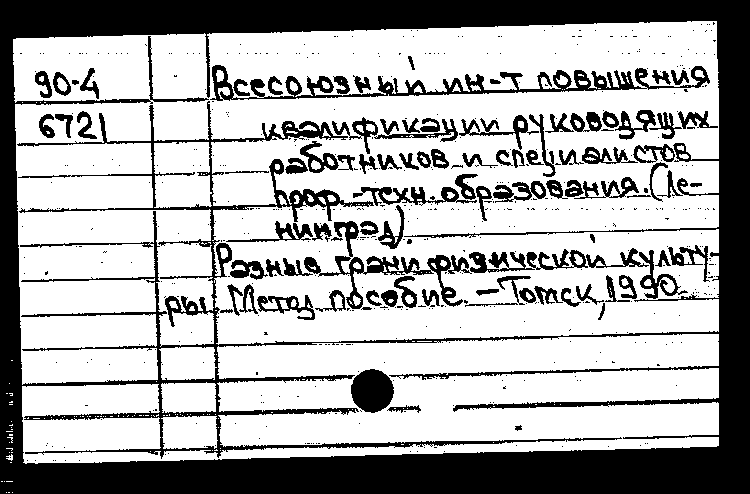 90-4 Всесоюзный ин-т повышения
6721 квалификации руководящих
работников и специалистов
проф.-техн. образования. (Ле-
нинград).
Разные грани физической культу-
ры. Метод. пособие. - Томск, 1990.